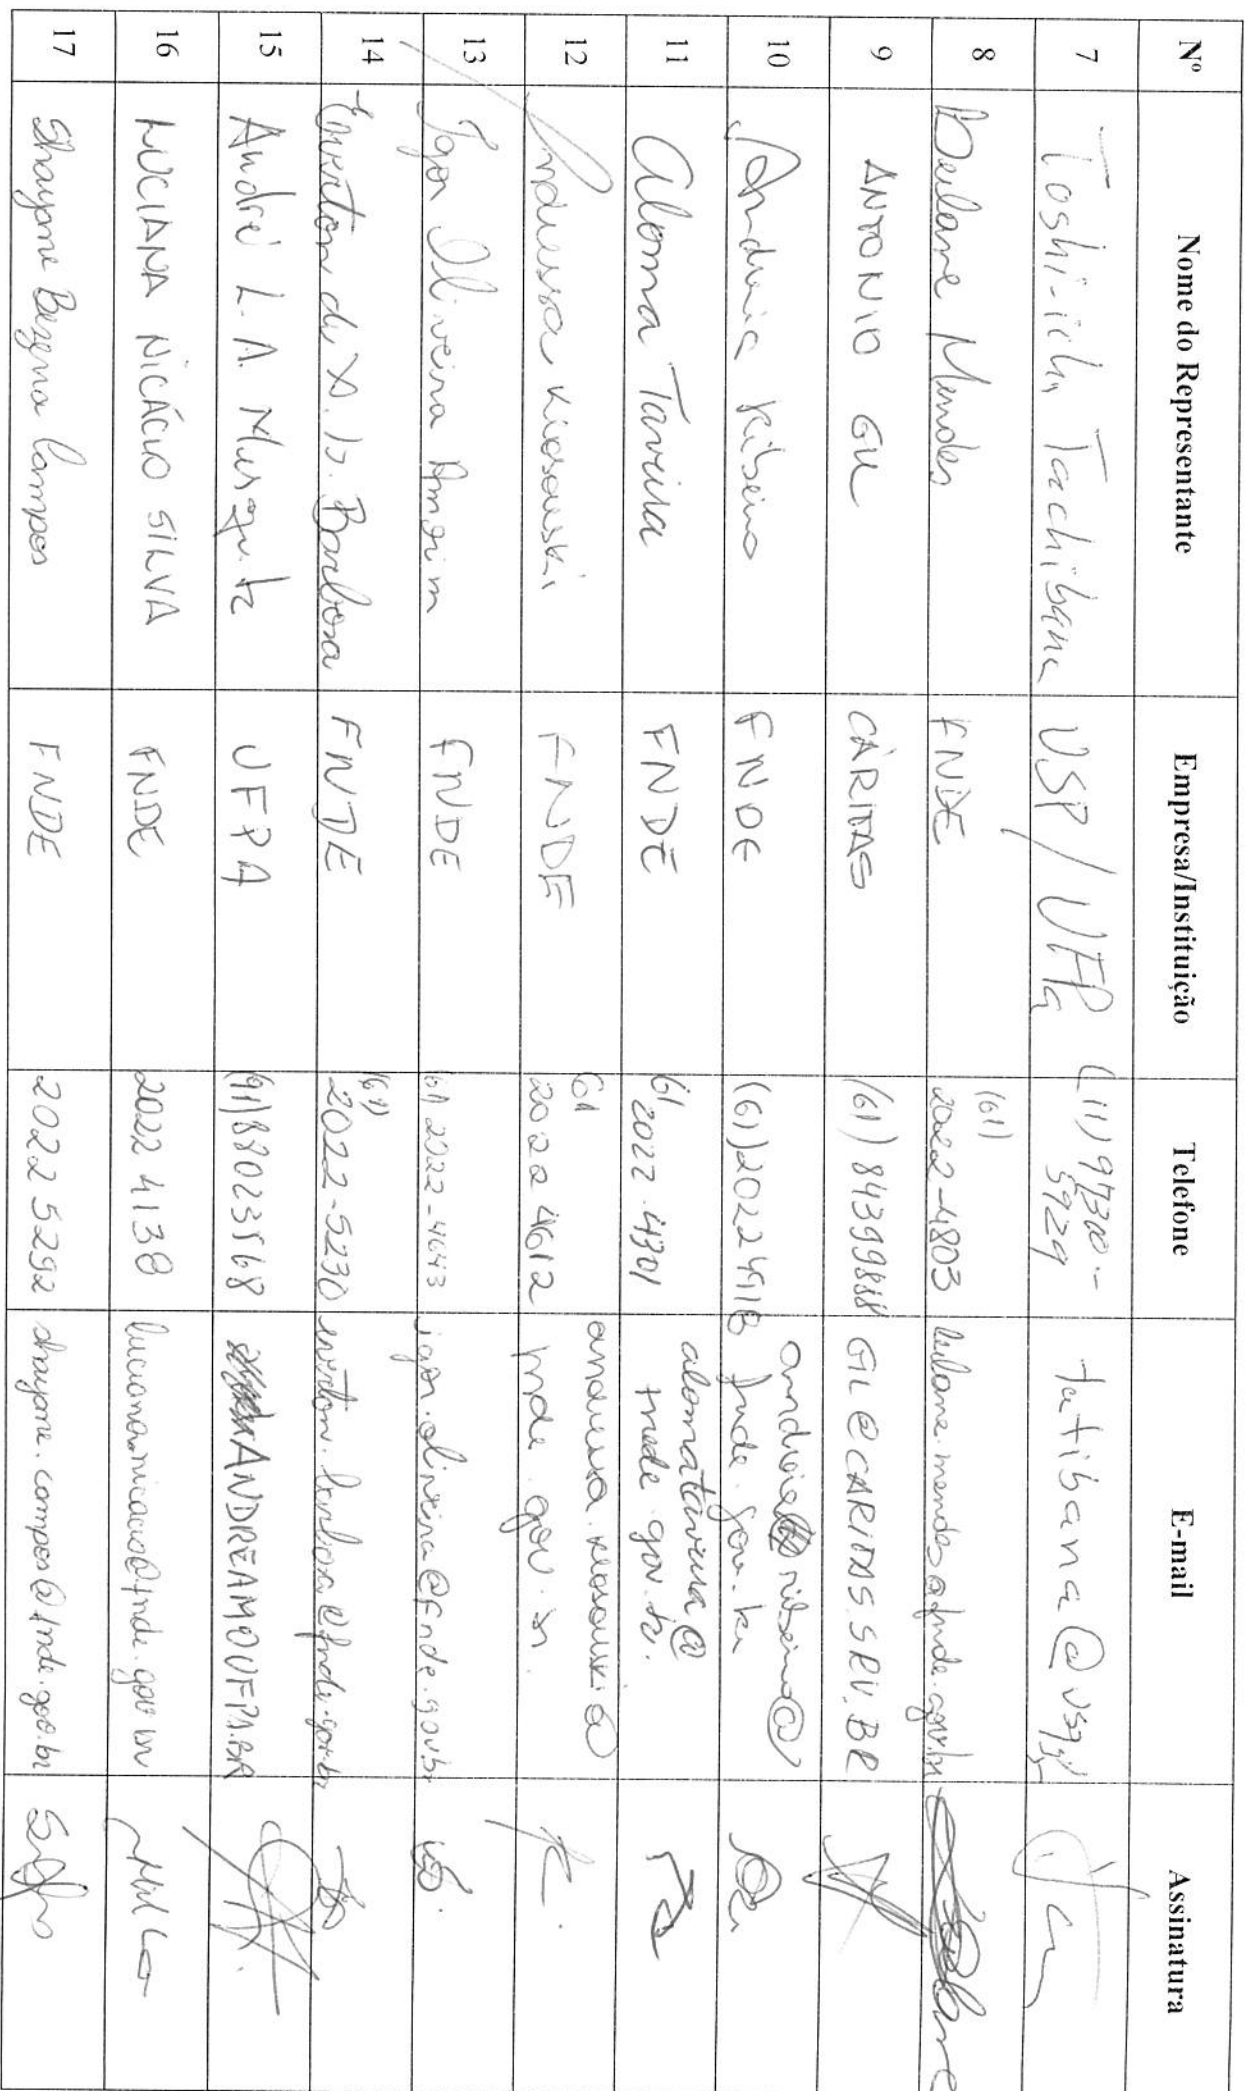 Nº Nome do Representante Empresa/Instituição Telefone E-mail Assinatura
7 Toshi-ichi Tachibana USP / UFPA (11) 97300-5929
8 Deilane Mendes FNDE (61) 2022-4803
9 ANTONIO GIL CÁRITAS (61) 84399888 GIL@CARITAS.SRV.BR
10 Andreia Ribeiro FNDE (61) 2022 4918
11 Aloma Taveira FNDE 61 2022-4301 alomataveira@
fnede.gov.br.
12 Andressa Klosowski FNDE 61 2022 4612 andressa.klosowski@
fnde.gov.br.
13 Igor Oliveira Amorim FNDE 61 2022-4643 igor.oliveira@fnde.gov.br
14 Everton de X. B. Barbosa FNDE (61) 2022-5230 everton.barbosa@fnde.gov.br
15 André L. A. Mesquita UFPA (91) 88023568
16 LUCIANA NICÁCIO SILVA FNDE 2022 4138 luciana.nicacio@fnde.gov.br
17 Shayane Bezerra Campos FNDE 2022 5292 shayane.campos@fnde.gov.br